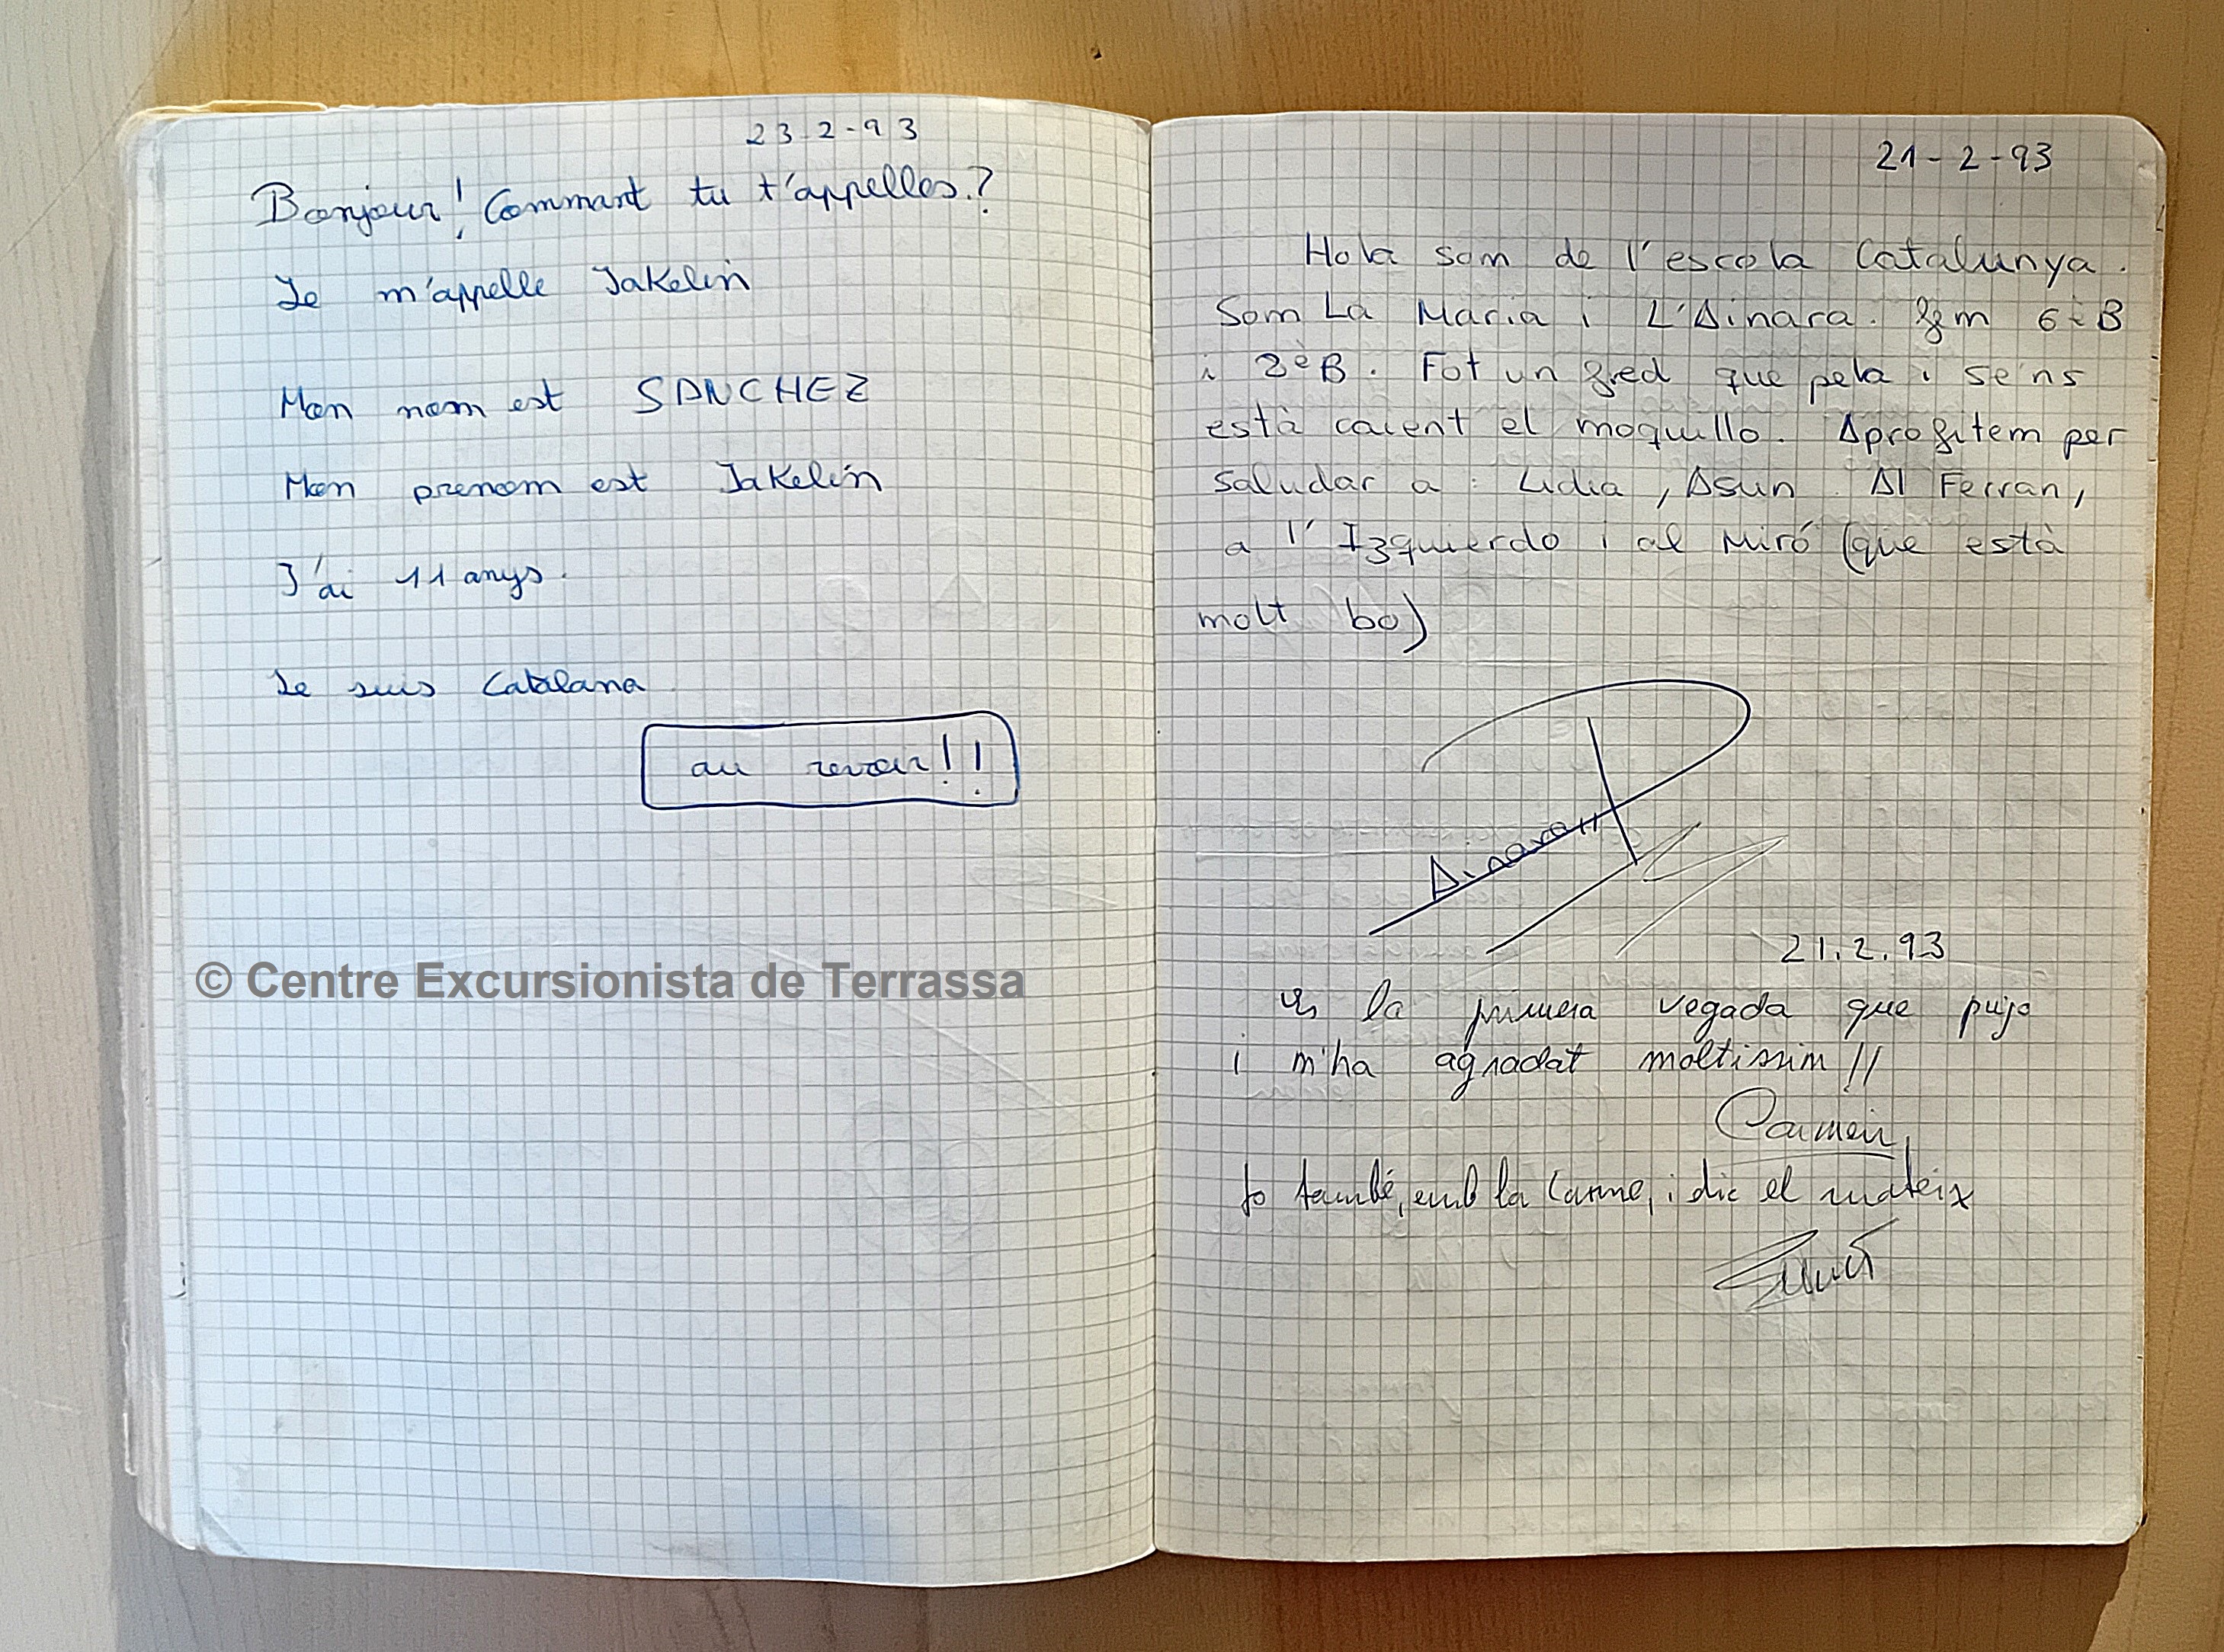 23-2-93
Bonjour! Commant tu t'appelles.?
Je m'appelle Jakelin
Mon nom est SANCHEZ
Mon prenom est Jakelin
J'ai 11 anys.
Je suis Catalana
au revoir!!
© Centre Excursionista de Terrassa
21-2-93
Hola som de l'escola Catalunya.
Som La Maria i L'Ainara. fem 6è B
i 8è B. Fot un fred que pela i se'ns
està caient el moquillo. Aprofitem per
saludar a: Lidia, Asun. Al Ferran,
a l'Izquierdo i al Miró (que està
molt bo)
Ainara
21.2.93
És la primera vegada que pujo
i m'ha agradat moltissim!!
Carmen
Jo també, amb la Carme, i dic el mateix